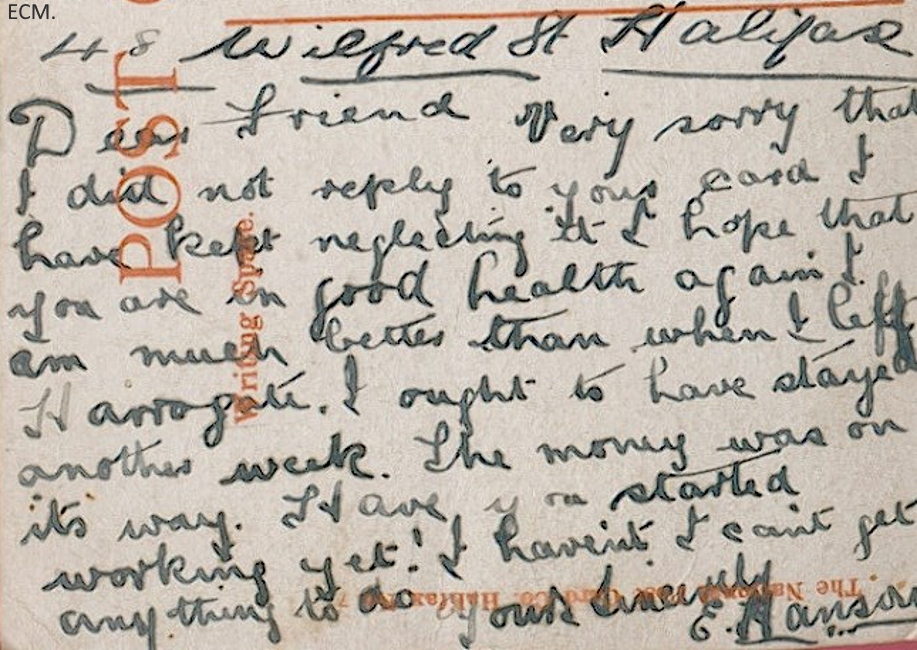 ECM.
48 Wilfred St Halifax
Dear Friend Very sorry that
I did not reply to your card I
have kept neglecting it I hope that
you are in good health again I
am much better than when I left
Harrogate. I ought to have stayed
another week. The money was on
its way. Have you started
working yet! I havent I cant get
anything to do Yours Sincerely
E. Hanson
POST
Writing Space.
The National Post Card Co. Halifax